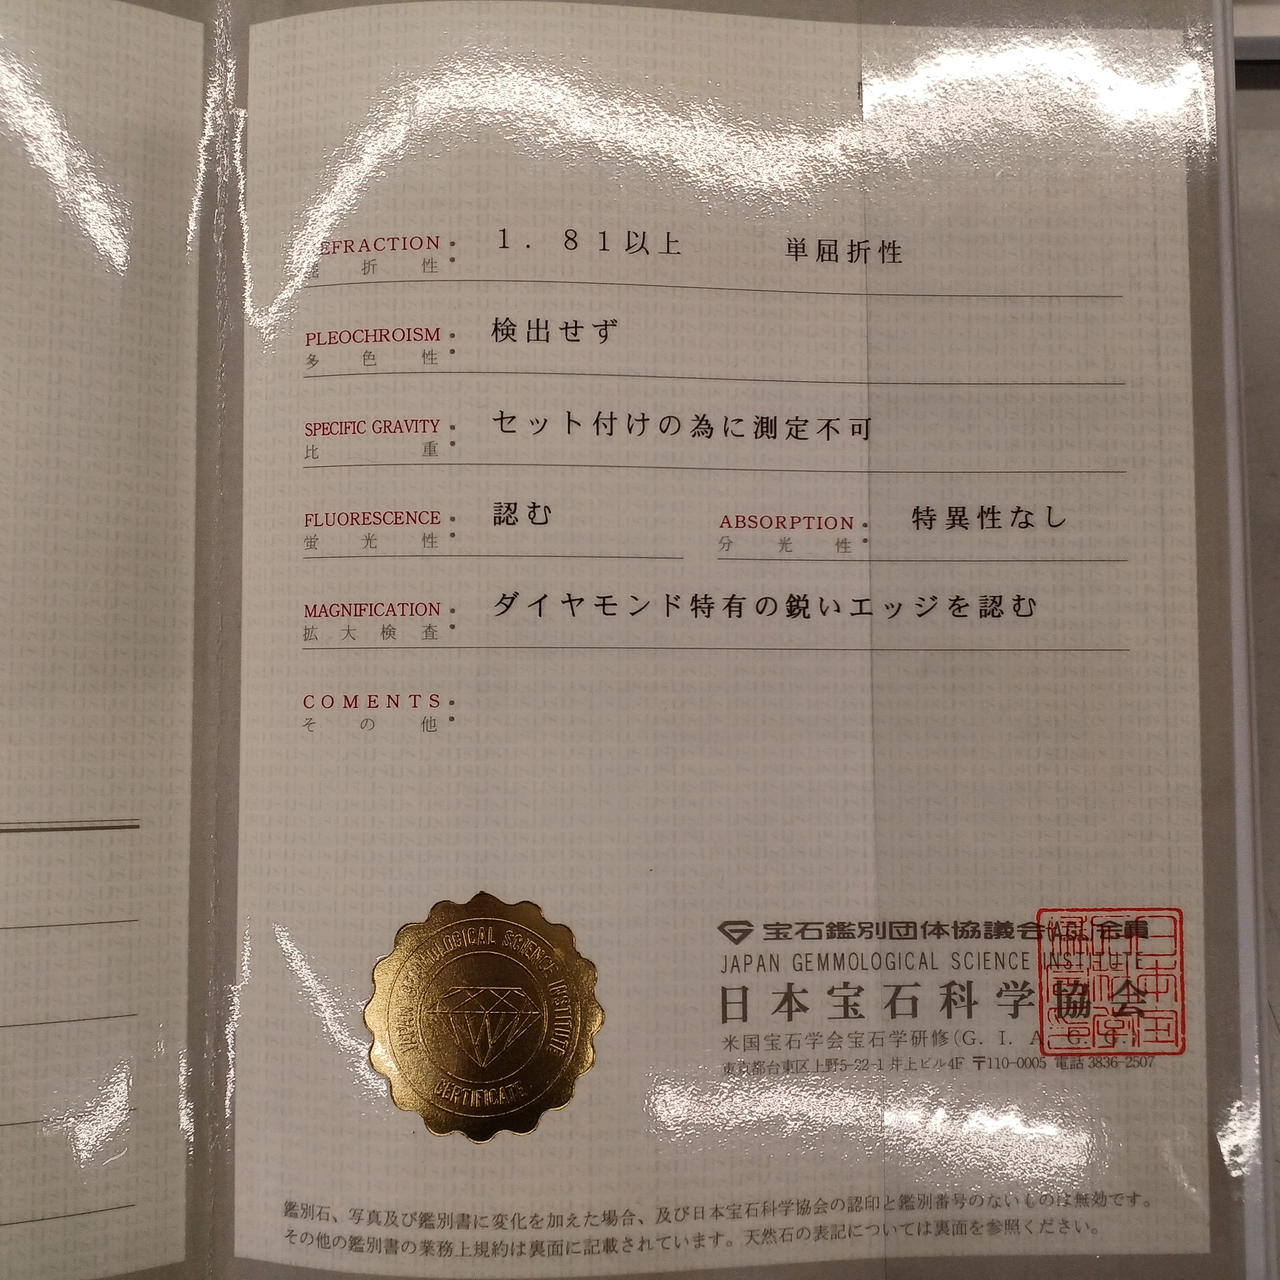 REFRACTION : １．８１以上 単屈折性
屈折性
PLEOCHROISM : 検出せず
多色性
SPECIFIC GRAVITY : セット付けの為に測定不可
比重
FLUORESCENCE : 認む ABSORPTION : 特異性なし
蛍光性 分光性
MAGNIFICATION : ダイヤモンド特有の鋭いエッジを認む
拡大検査
COMENTS :
その他
JAPAN GEMMOLOGICAL SCIENCE INSTITUTE
CERTIFICATE
宝石鑑別団体協議会(AGL)会員
JAPAN GEMMOLOGICAL SCIENCE INSTITUTE
日本宝石科学協会
米国宝石学会宝石学研修(G. I. A. G. G.)
東京都台東区上野5-22-1 井上ビル4F 〒110-0005 電話 3836-2507
鑑別石、写真及び鑑別書に変化を加えた場合、及び日本宝石科学協会の認印と鑑別番号のないものは無効です。
その他の鑑別書の業務上規約は裏面に記載されています。天然石の表記については裏面を参照ください。